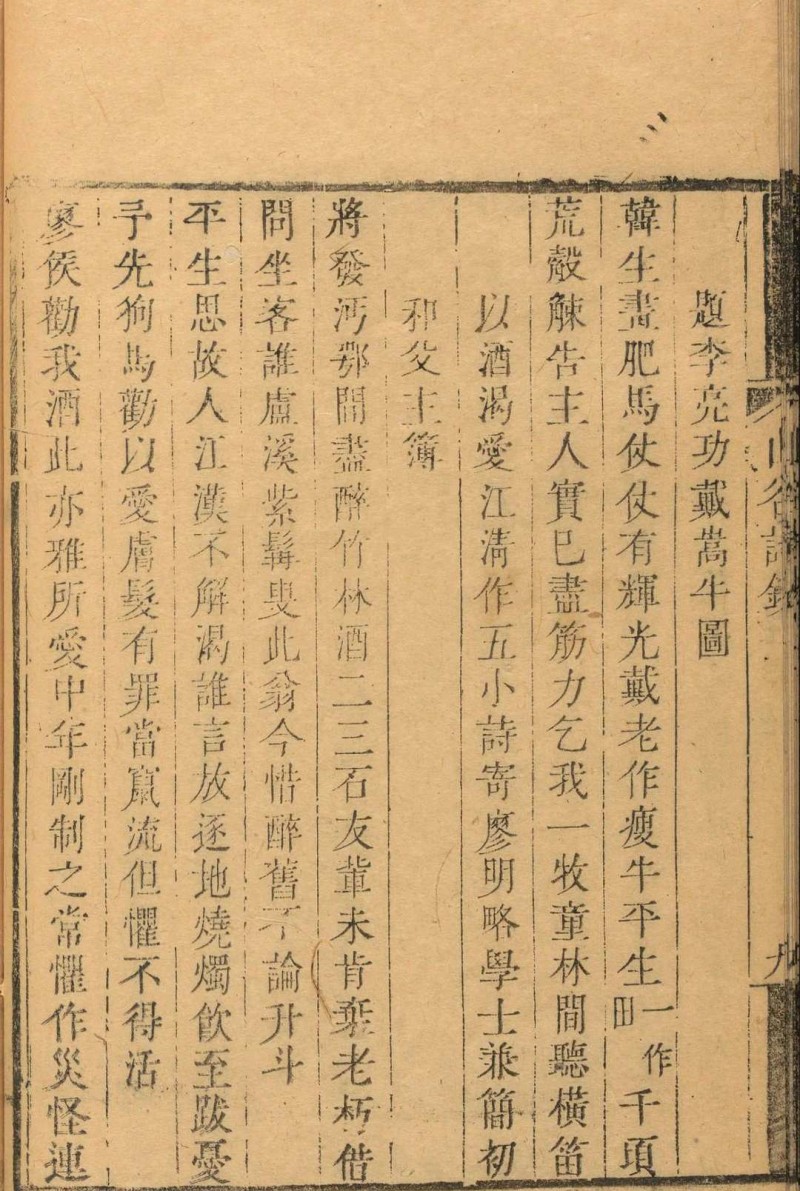 山谷詩鈔
九
題李亮功戴嵩牛圖
韓生畫肥馬仗仗有輝光戴老作瘦牛平生一作田千頃
荒觳觫告主人實已盡筋力乞我一牧童林間聽橫笛
以酒渴愛江淸作五小詩寄廖明略學士兼簡初
和父主簿
將發沔鄂間盡醉竹林酒二三石友輩未肯棄老朽借
問坐客誰盧溪紫髯叟此翁今惜醉舊不論升斗
平生思故人江漢不解渴誰言放逐地燒燭飲至跋憂
予先狗馬勸以愛膚髮有罪當竄流但懼不得活
廖侯勸我酒此亦雅所愛中年剛制之常懼作災怪連